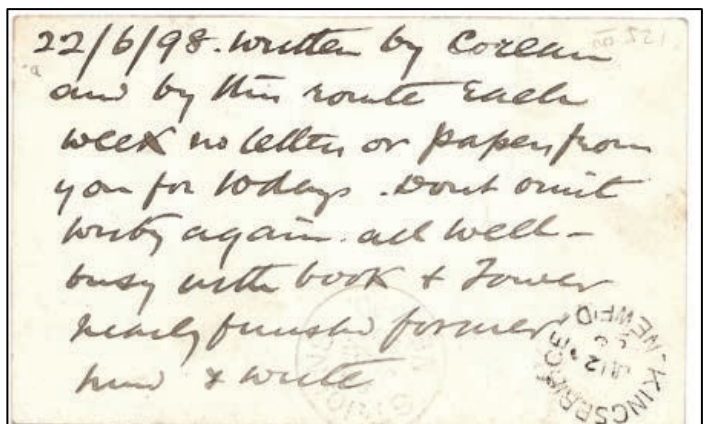 22/6/98. written by Corean
and by this route each
week no letter or paper from
you for 10 days. Dont omit
writg again. all well -
busy with book & Tower
nearly finishd former
mind & write
KINGSBRIDGE
NEWFD